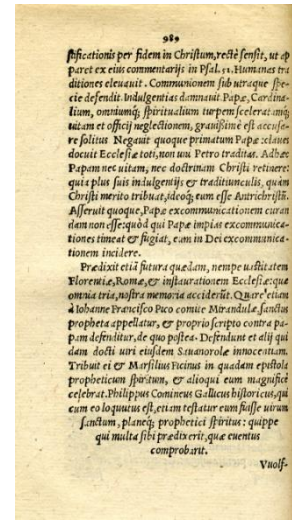 989
stificationis per fidem in Christum, rectè sensit, ut ap
paret ex eius commentarijs in Psal. 51. Humanas tra
ditiones eleuauit. Communionem sub utraque spe-
cie defendit. Indulgentias damnauit Papæ, Cardina-
lium, omniumq́; spiritualium turpem sceleratamq́;
uitam et officij neglectionem, grauißimè est accusa-
re solitus Negauit quoque primatum Papæ: claues
docuit Ecclesiæ toti, non uni Petro traditas. Adhæc
Papam nec uitam, nec doctrinam Christi retinere:
quia plus suis indulgentijs & traditiunculis, quàm
Christi merito tribuat, ideoq́; eum esse Antichristũ.
Asseruit quoque, Papæ excommunicationem curan
dam non esse: quòd qui Papæ impias excommunica-
tiones timeat & fugiat, eam in Dei excommunica-
tionem incidere.
Prædixit etiã futura quædam, nempe uastitatem
Florentiæ, Romæ, & instaurationem Ecclesiæ: quæ
omnia tria, nostra memoria acciderũt. Quare etiam
à Iohanne Francisco Pico comite Mirandulæ, sanctus
propheta appellatur, & proprio scripto contra pa-
pam defenditur, de quo postea. Defendunt et alij qui
dam docti uiri eiusdem Sauanorolæ innocentiam.
Tribuit ei & Marsilius Ficinus in quadam epistola
propheticum spiritum, & alioqui eum magnificè
celebrat. Philippus Comineus Gallicus historicus, qui
cum eo loquutus est, etiam testatur eum fuisse uirum
sanctum, planeq́; prophetici spiritus: quippe
qui multa sibi prædixerit, quæ euentus
comprobarit.
Vuolf-